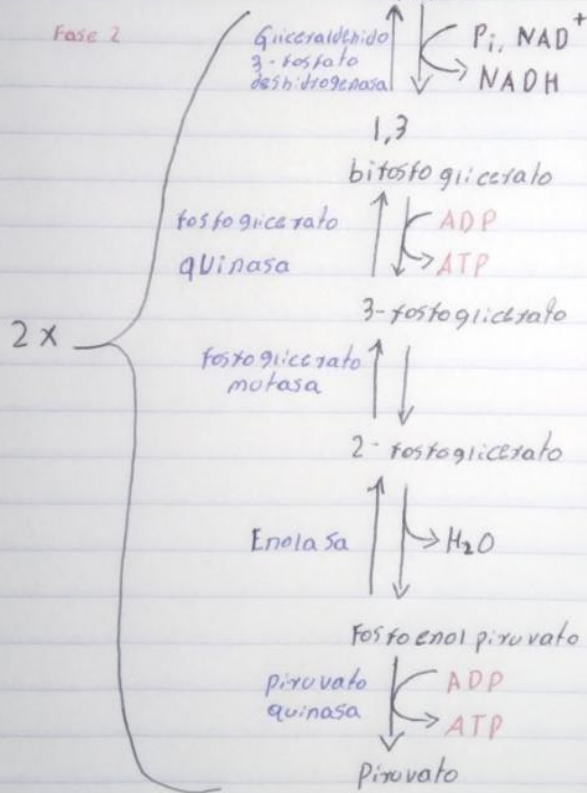 Fase 2
Gliceraldehido
3-fosfato
deshidrogenasa
Pi, NAD+
NADH
1,3
bifosfoglicerato
fosfoglicerato
quinasa
ADP
ATP
3-fosfoglicerato
2x
fosfoglicerato
mutasa
2-fosfoglicerato
Enolasa
H₂O
Fosfoenol piruvato
piruvato
quinasa
ADP
ATP
Piruvato